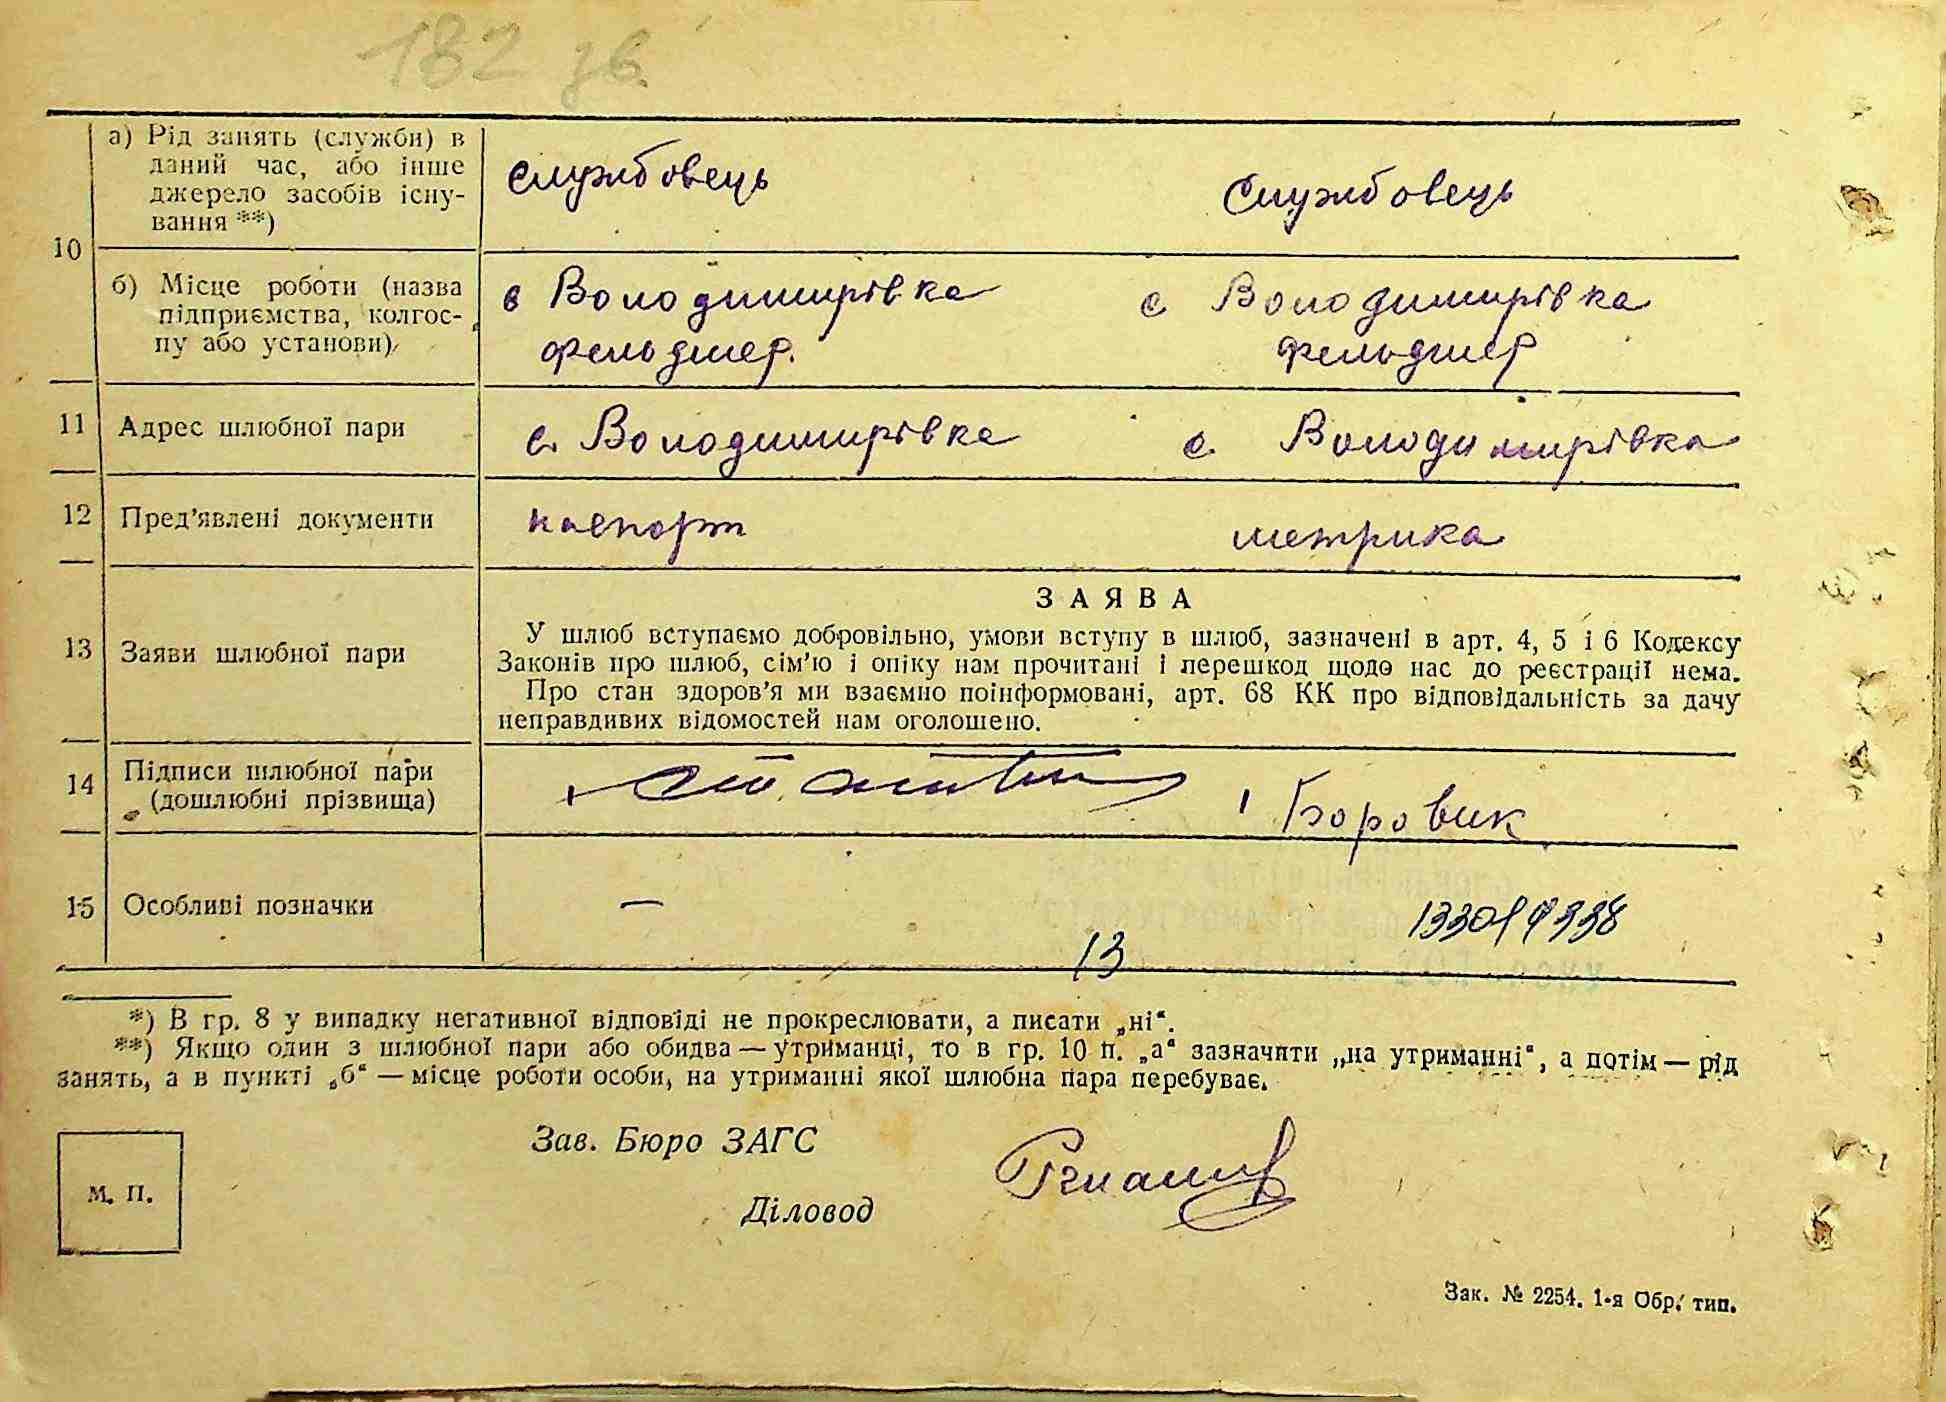 182 зв.
а) Рід занять (служби) в
даний час, або інше
джерело засобів існу-
вання **)
службовець
службовець
10
б) Місце роботи (назва
підприємства, колгос-
пу або установи)
в Володимирівка
с Володимирівка
фельдшер.
фельдшер
11 Адрес шлюбної пари
с. Володимирівка
с. Володимирівка
12 Пред’явлені документи
паспорт
метрика
13 Заяви шлюбної пари
ЗАЯВА
У шлюб вступаємо добровільно, умови вступу в шлюб, зазначені в арт. 4, 5 і 6 Кодексу
Законів про шлюб, сім’ю і опіку нам прочитані і перешкод щодо нас до реєстрації нема.
Про стан здоров’я ми взаємно поінформовані, арт. 68 КК про відповідальність за дачу
неправдивих відомостей нам оголошено.
14 Підписи шлюбної пари
(дошлюбні прізвища)
Боровик
15 Особливі позначки
—
13
*) В гр. 8 у випадку негативної відповіді не прокреслювати, а писати „ні“.
**) Якщо один з шлюбної пари або обидва — утриманці, то в гр. 10 п. „а“ зазначити „на утриманні“, а потім — рід
занять, а в пункті „б“ — місце роботи особи, на утриманні якої шлюбна пара перебуває.
Зав. Бюро ЗАГС
М. П.
Діловод
Зак. № 2254. 1-я Обр. тип.